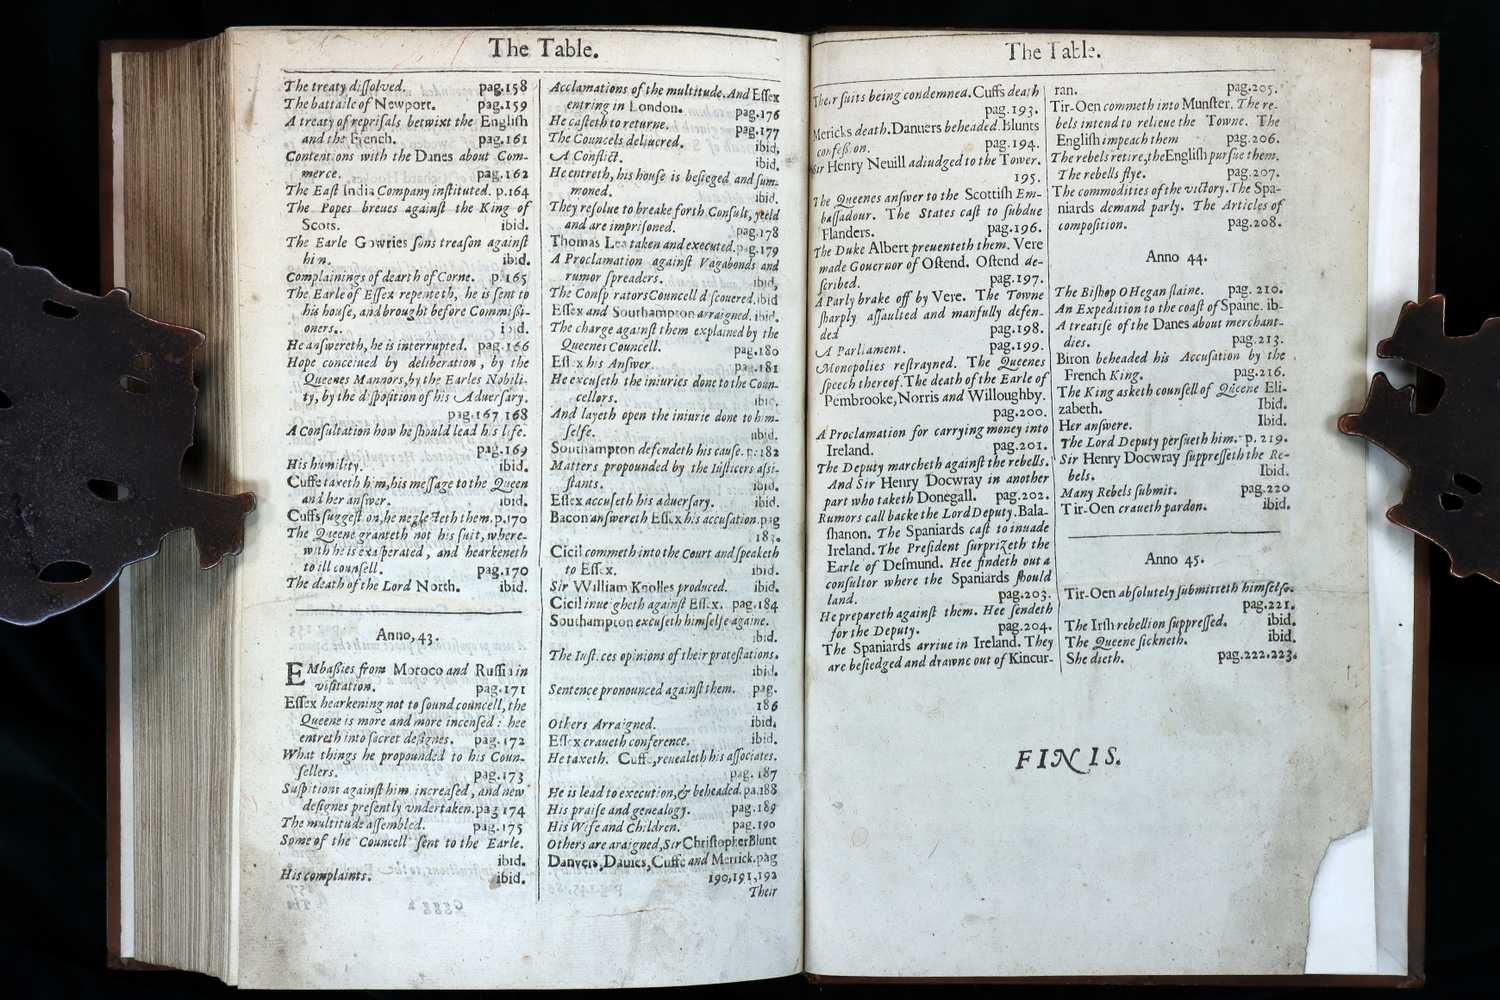 The Table.
The treaty dissolved. pag.158
The battaile of Newport. pag.159
A treaty of reprisals betwixt the English
and the French. pag.161
Contentions with the Danes about Com-
merce. pag.162
The East India Company instituted. p.164
The Popes breues against the King of
Scots. ibid.
The Earle Gowries sons treason against
him. ibid.
Complainings of dearth of Corne. p.165
The Earle of Essex repenteth, he is sent to
his house, and brought before Commissi-
oners. ibid.
He answereth, he is interrupted. pag.166
Hope conceiued by deliberation, by the
Queenes Mannors, by the Earles Nobili-
ty, by the disposition of his Aduersary.
pag.167 168
A Consultation how he should lead his life.
pag.169
His humility. ibid.
Cuffe taxeth him, his message to the Queen
and her answer. ibid.
Cuffs suggestion, he neglecteth them. p.170
The Queene granteth not his suit, where-
with he is exasperated, and hearkeneth
to ill counsell. pag.170
The death of the Lord North. ibid.
Anno, 43.
EMbassies from Moroco and Russia in
visitation. pag.171
Essex hearkening not to sound councell, the
Queene is more and more incensed: hee
entreth into secret designes. pag.172
What things he propounded to his Coun-
sellers. pag.173
Suspitions against him increased, and new
designes presently vndertaken. pag 174
The multitude assembled. pag.175
Some of the Councell sent to the Earle.
ibid.
His complaints. ibid.
Acclamations of the multitude. And Essex
entring in London. pag.176
He casteth to returne. pag.177
The Councels deliuered. ibid.
A Conflict. ibid.
He entreth, his house is besieged and sum-
moned. ibid.
They resolue to breake forth Consult, yeeld
and are imprisoned. pag.178
Thomas Lea taken and executed. pag.179
A Proclamation against Vagabonds and
rumor spreaders. ibid.
The Conspirators Councell discouered. ibid
Essex and Southampton arraigned. ibid.
The charge against them explained by the
Queenes Councell. pag.180
Essex his Answer. pag.181
He excuseth the injuries done to the Coun-
cellors. ibid.
And layeth open the iniurie done to him-
selfe. ibid.
Southampton defendeth his cause. p.182
Matters propounded by the Iusticers assi-
stants. ibid.
Essex accuseth his aduersary. ibid.
Bacon answereth Essex his accusation. pag
183.
Cicil commeth into the Court and speaketh
to Essex. ibid.
Sir William Knolles produced. ibid.
Cicil inueigheth against Essex. pag.184
Southampton excuseth himselfe againe.
ibid.
The Iustices opinions of their protestations.
ibid.
Sentence pronounced against them. pag.
186
Others Arraigned. ibid.
Essex craueth conference. ibid.
He taxeth. Cuffe, reuealeth his associates.
pag. 187
He is lead to execution, & beheaded. pa.188
His praise and genealogy. pag.189
His Wife and Children. pag.190
Others are araigned, Sir Christopher Blunt
Danvers, Dauies, Cuffe and Merrick. pag
190,191,192
Their
The Table.
Their suits being condemned. Cuffs death
pag.193.
Mericks death. Danuers beheaded. Blunts
confession. pag.194.
Sir Henry Neuill adiudged to the Tower.
195.
The Queenes answer to the Scottish Em-
bassadour. The States cast to subdue
Flanders. pag.196.
The Duke Albert preuenteth them. Vere
made Gouernor of Ostend. Ostend de-
scribed. pag.197.
A Parly brake off by Vere. The Towne
sharply assaulted and manfully defen-
ded pag.198.
A Parliament. pag.199.
Monopolies restrayned. The Queenes
speech thereof. The death of the Earle of
Pembrooke, Norris and Willoughby.
pag.200.
A Proclamation for carrying money into
Ireland. pag.201.
The Deputy marcheth against the rebells.
And Sir Henry Docwray in another
part who taketh Donegall. pag.202.
Rumors call backe the Lord Deputy. Bala-
shanon. The Spaniards cast to inuade
Ireland. The President surprizeth the
Earle of Desmund. Hee findeth out a
consultor where the Spaniards should
land. pag.203.
He prepareth against them. Hee sendeth
for the Deputy. pag.204.
The Spaniards arriue in Ireland. They
are besiedged and drawne out of Kincur-
ran. pag.205.
Tir-Oen commeth into Munster. The re-
bels intend to relieue the Towne. The
English impeach them pag.206.
The rebels retire, the English pursue them.
The rebells flye. pag.207.
The commodities of the victory. The Spa-
niards demand parly. The Articles of
composition. pag.208.
Anno 44.
The Bishop O Hegan slaine. pag. 210.
An Expedition to the coast of Spaine. ib-
A treatise of the Danes about merchant-
dies. pag.213.
Biron beheaded his Accusation by the
French King. pag.216.
The King asketh counsell of Queene Eli-
zabeth. Ibid.
Her answere. Ibid.
The Lord Deputy persueth him. p. 219.
Sir Henry Docwray suppresseth the Re-
bels. Ibid.
Many Rebels submit. pag.220
Tir-Oen craueth pardon. ibid.
Anno 45.
Tir-Oen absolutely submitteth himselfe.
pag.221.
The Irish rebellion suppressed. ibid.
The Queene sickneth. ibid.
She dieth. pag.222.223.
FINIS.